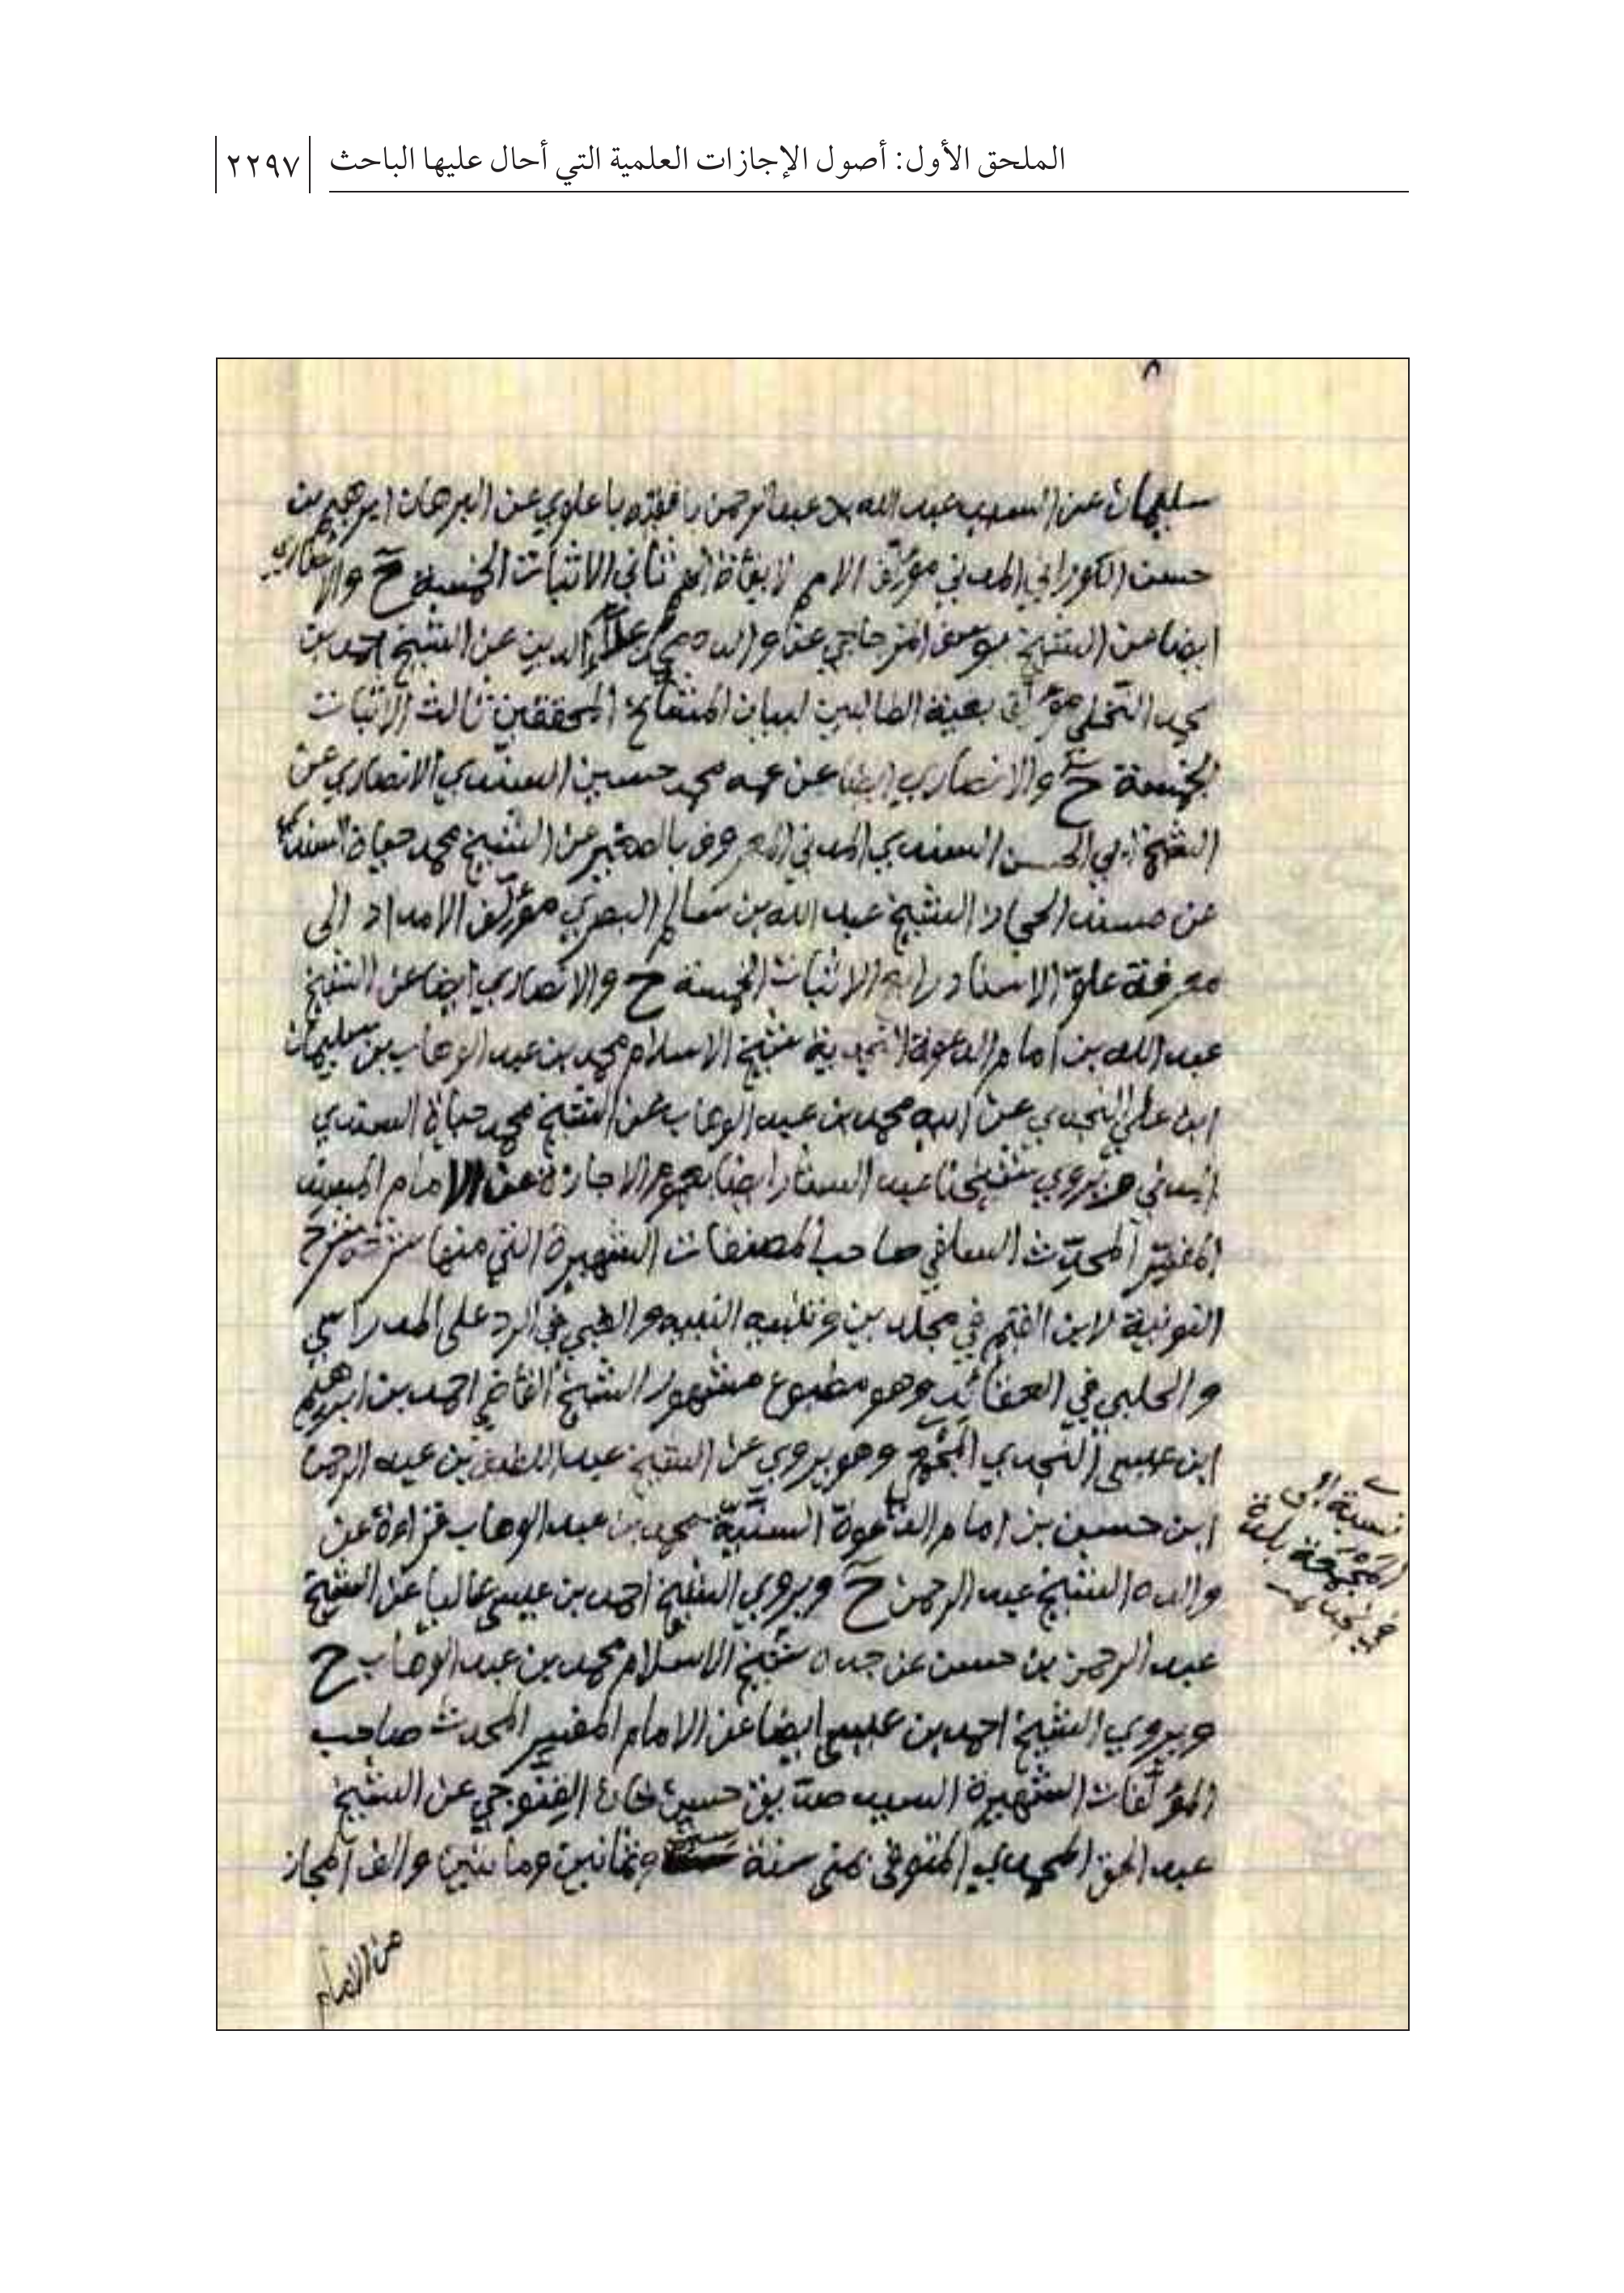 الملحق الأول: أصول الإجازات العلمية التي أحال عليها الباحث
٢٢٩٧
٨
سليمان عن السيد عبد الله بن عبد الرحمن بافقيه باعلوي عن البرهان ابرهيم بن
حسن الكوراني المدني مؤلف الامم لايقاظ الهمم ثاني الاثبات الخمسة ح والانصاري
ايضا عن الشيخ يوسف المزجاجي عن والده محمد علاء الدين عن الشيخ احمد بن
محمد النخلي مؤلف بغية الطالبين لبيان المشايخ المحققين ثالث الاثبات
الخمسة ح والانصاري ايضا عن عمه محمد حسين السندي الانصاري عن
الشيخ ابي الحسن السندي المدني المعروف بالصغير عن الشيخ محمد حياة السندي
عن مسند الحجاز الشيخ عبد الله بن سالم البصري مؤلف الامداد الى
معرفة علو الاسناد رابع الاثبات الخمسة ح والانصاري ايضا عن الشيخ
عبد الله بن امام الدعوة النجدية شيخ الاسلام محمد بن عبد الوهاب بن سليمان
ابن علي النجدي عن ابيه محمد بن عبد الوهاب عن الشيخ محمد حياة السندي
المدني ح ويروي شيخنا عبد الستار ايضا بعموم الاجازة عن الامام
المحدث السلفي صاحب المصنفات الشهيرة التي منها شرح
النونية لابن القيم في مجلدين وتنبيه النبيه والغبي في الرد على المدراسي
والحلبي في العقائد وهو مطبوع مشهور الشيخ احمد بن ابرهيم
ابن عيسى النجدي المجمعي وهو يروي عن الشيخ عبد اللطيف بن عبد الرحمن
ابن حسن بن امام الدعوة السنية محمد بن عبد الوهاب قراءة عن
والده الشيخ عبد الرحمن ح ويروي الشيخ احمد بن عيسى عاليا عن الشيخ
عبد الرحمن بن حسن عن جده شيخ الاسلام محمد بن عبد الوهاب ح
ويروي الشيخ احمد بن عيسى ايضا عن الامام المفسر المحدث صاحب
المؤلفات الشهيرة السيد صديق حسن خان القنوجي عن الشيخ
عبد الحق المحمدي المتوفى بمنى سنة وثمانين ومائتين والف المجاز
نسبة الى
المجمعة بلدة
في نجد
من الامام